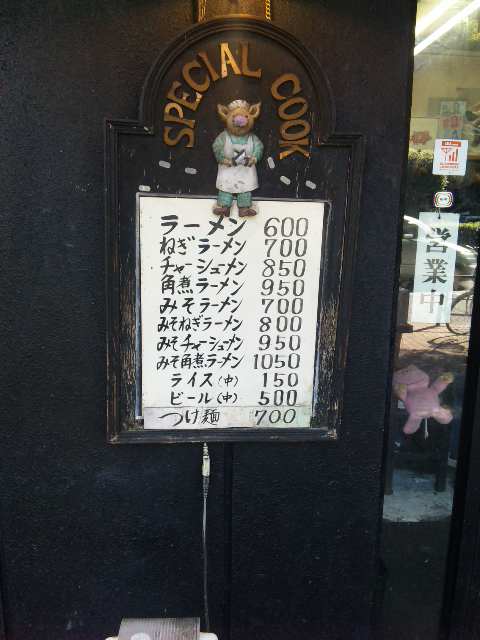 SPECIAL COOK
ラーメン 600
ねぎラーメン 700
チャーシューメン 850
角煮ラーメン 950
みそラーメン 700
みそねぎラーメン 800
みそチャーシューメン 950
みそ角煮ラーメン 1050
ライス(中) 150
ビール(中) 500
つけ麺 700
営業中